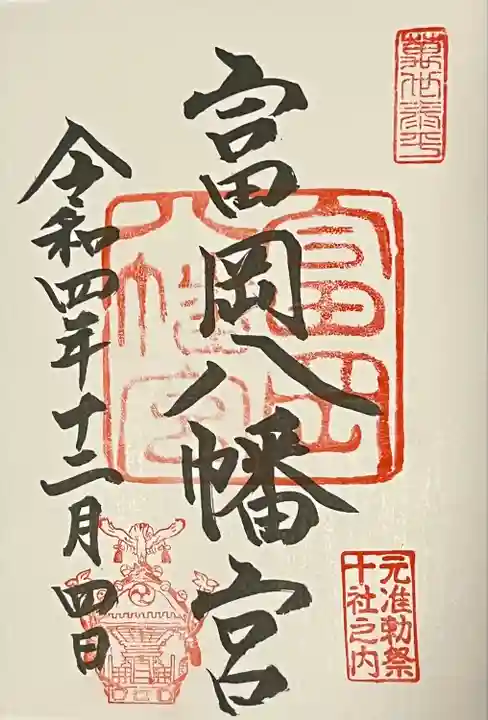 萬世泰平
富岡八幡宮
富岡八幡宮
元准勅祭
十社之内
令和四年十二月四日